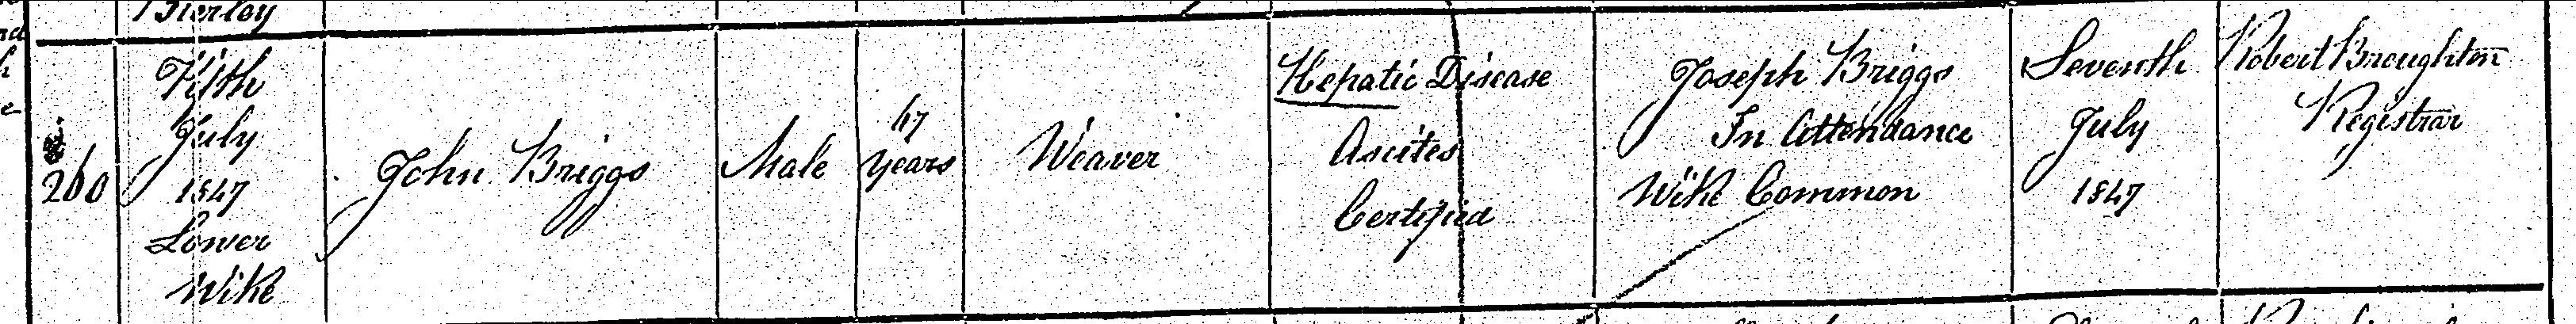 Bierley
260
Fifth
July
1847
Lower
Wike
John Briggs
Male
47
years
Weaver
Hepatic Disease
Ascites
Certified
Joseph Briggs
In Attendance
Wike Common
Seventh
July
1847
Robert Broughton
Registrar